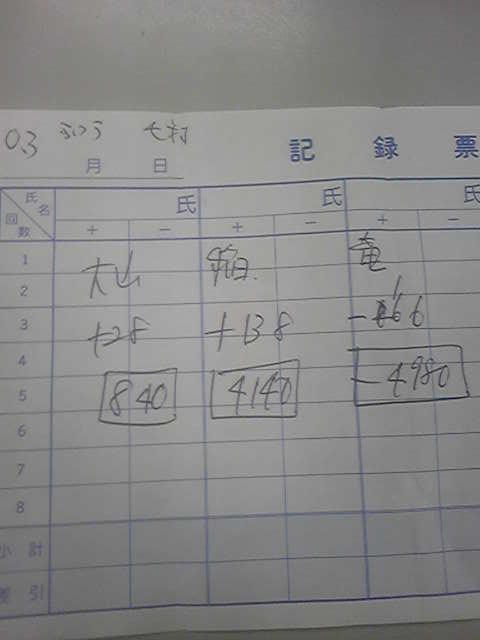 0.3 ふつう 七村
記録票
月 日
氏名 回数 氏 氏 氏
+ − + − + −
1 大山 竜
2
3 +28 +138 −166
4
5 840 4140 −4980
6
7
8
小計
差引